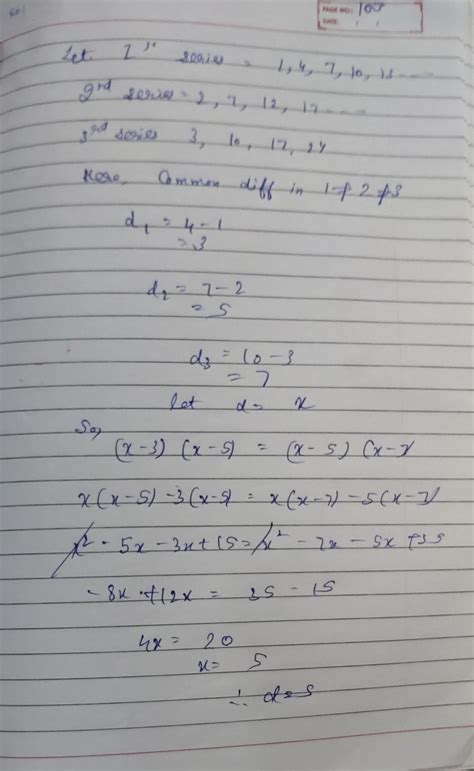 PAGE NO.: 105
DATE: / /
Let 1st series = 1, 4, 7, 10, 13 ----
2nd series = 2, 7, 12, 17 ----
3rd series 3, 10, 17, 24
Here, Common diff in 1 2 3
d1 = 4 - 1
= 3
d2 = 7 - 2
= 5
d3 = 10 - 3
= 7
let d = x
So,
(x-3) (x-5) = (x-5) (x-7
x(x-5) -3(x-5) = x(x-7) -5(x-7)
x² - 5x - 3x + 15 = x² - 7x - 5x + 35
- 8x + 12x = 35 - 15
4x = 20
x = 5
∴ d=5